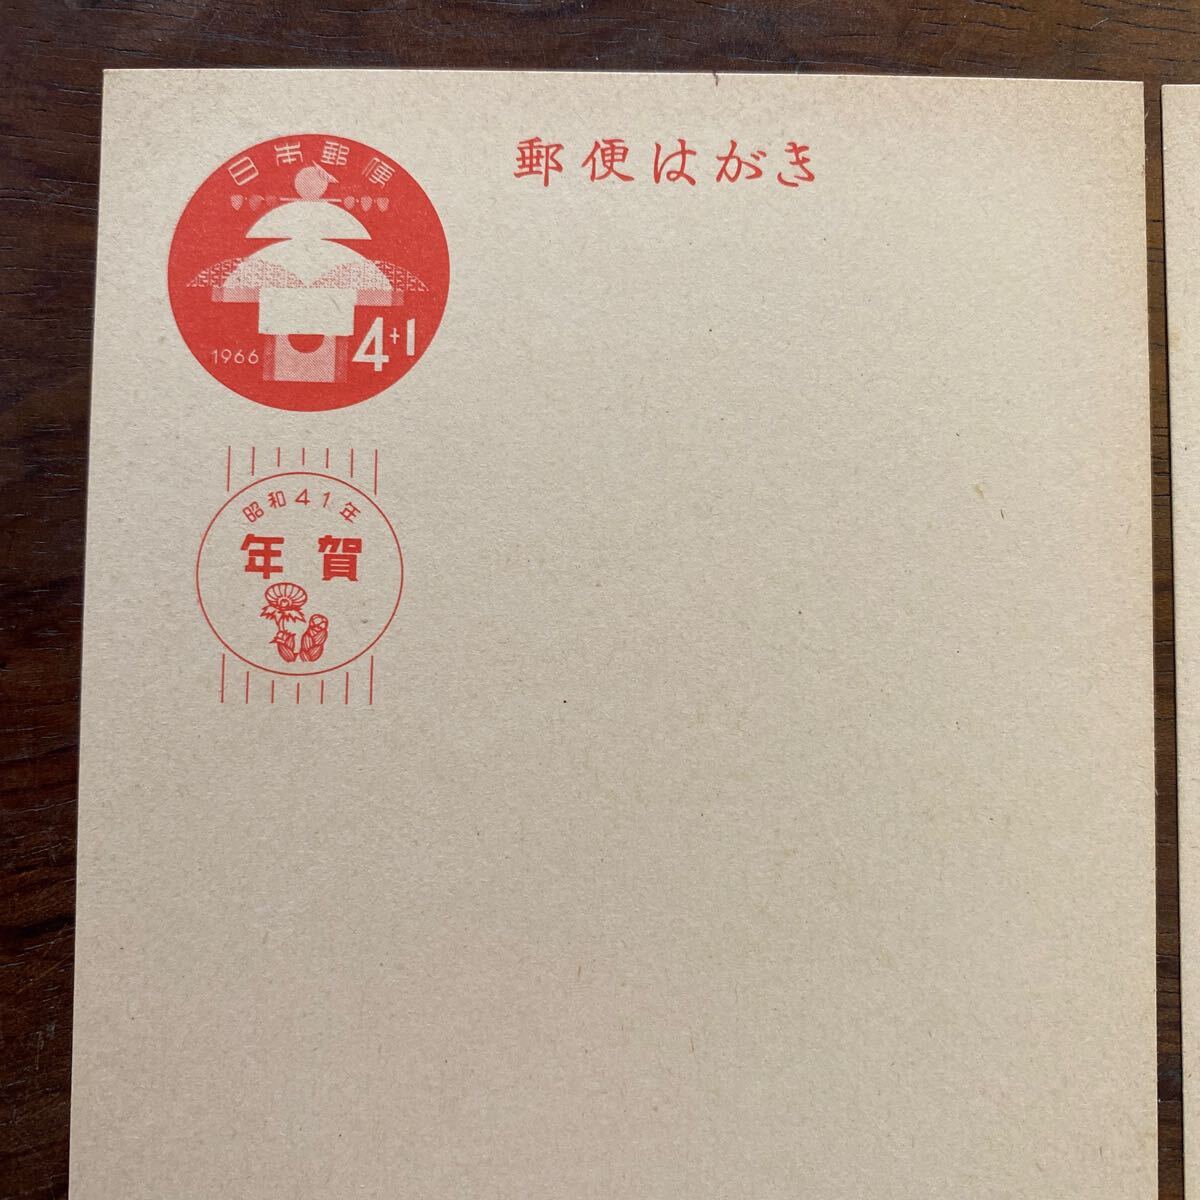 郵便はがき
日本郵便
1966
4+1
昭和41年
年賀